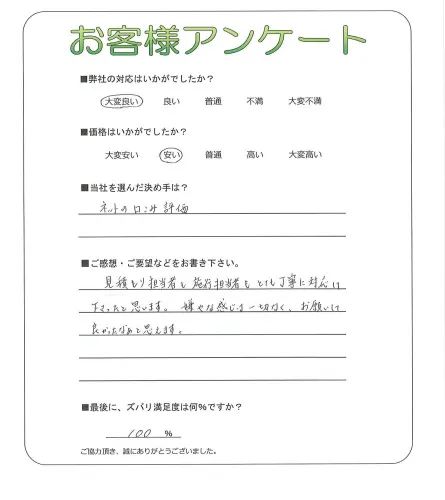 お客様アンケート
■弊社の対応はいかがでしたか？
大変良い 良い 普通 不満 大変不満
■価格はいかがでしたか？
大変安い 安い 普通 高い 大変高い
■当社を選んだ決め手は？
ネットの口コミ評価
■ご感想・ご要望などをお書き下さい。
見積もり担当者も施行担当者もとても丁寧に対応
下さったと思います。嫌やな感じは一切なく、お願いして
良かったなぁと思えます。
■最後に、ズバリ満足度は何％ですか？
100 ％
ご協力頂き、誠にありがとうございました。